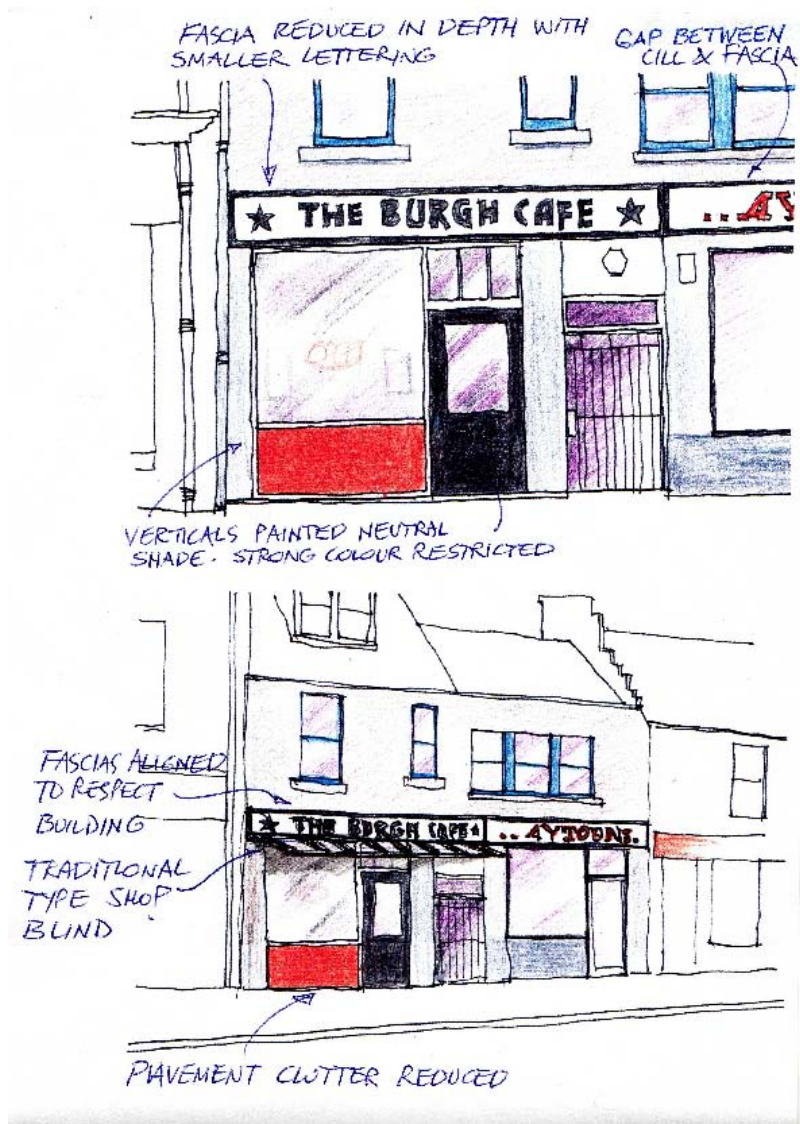 FASCIA REDUCED IN DEPTH WITH
SMALLER LETTERING
GAP BETWEEN
CILL & FASCIA
★ THE BURGH CAFE ★
..AY
VERTICALS PAINTED NEUTRAL
SHADE. STRONG COLOUR RESTRICTED
FASCIAS ALIGNED
TO RESPECT
BUILDING
TRADITIONAL
TYPE SHOP
BLIND
★ THE BURGH CAFE ★
..AYTOUNS.
PAVEMENT CLUTTER REDUCED